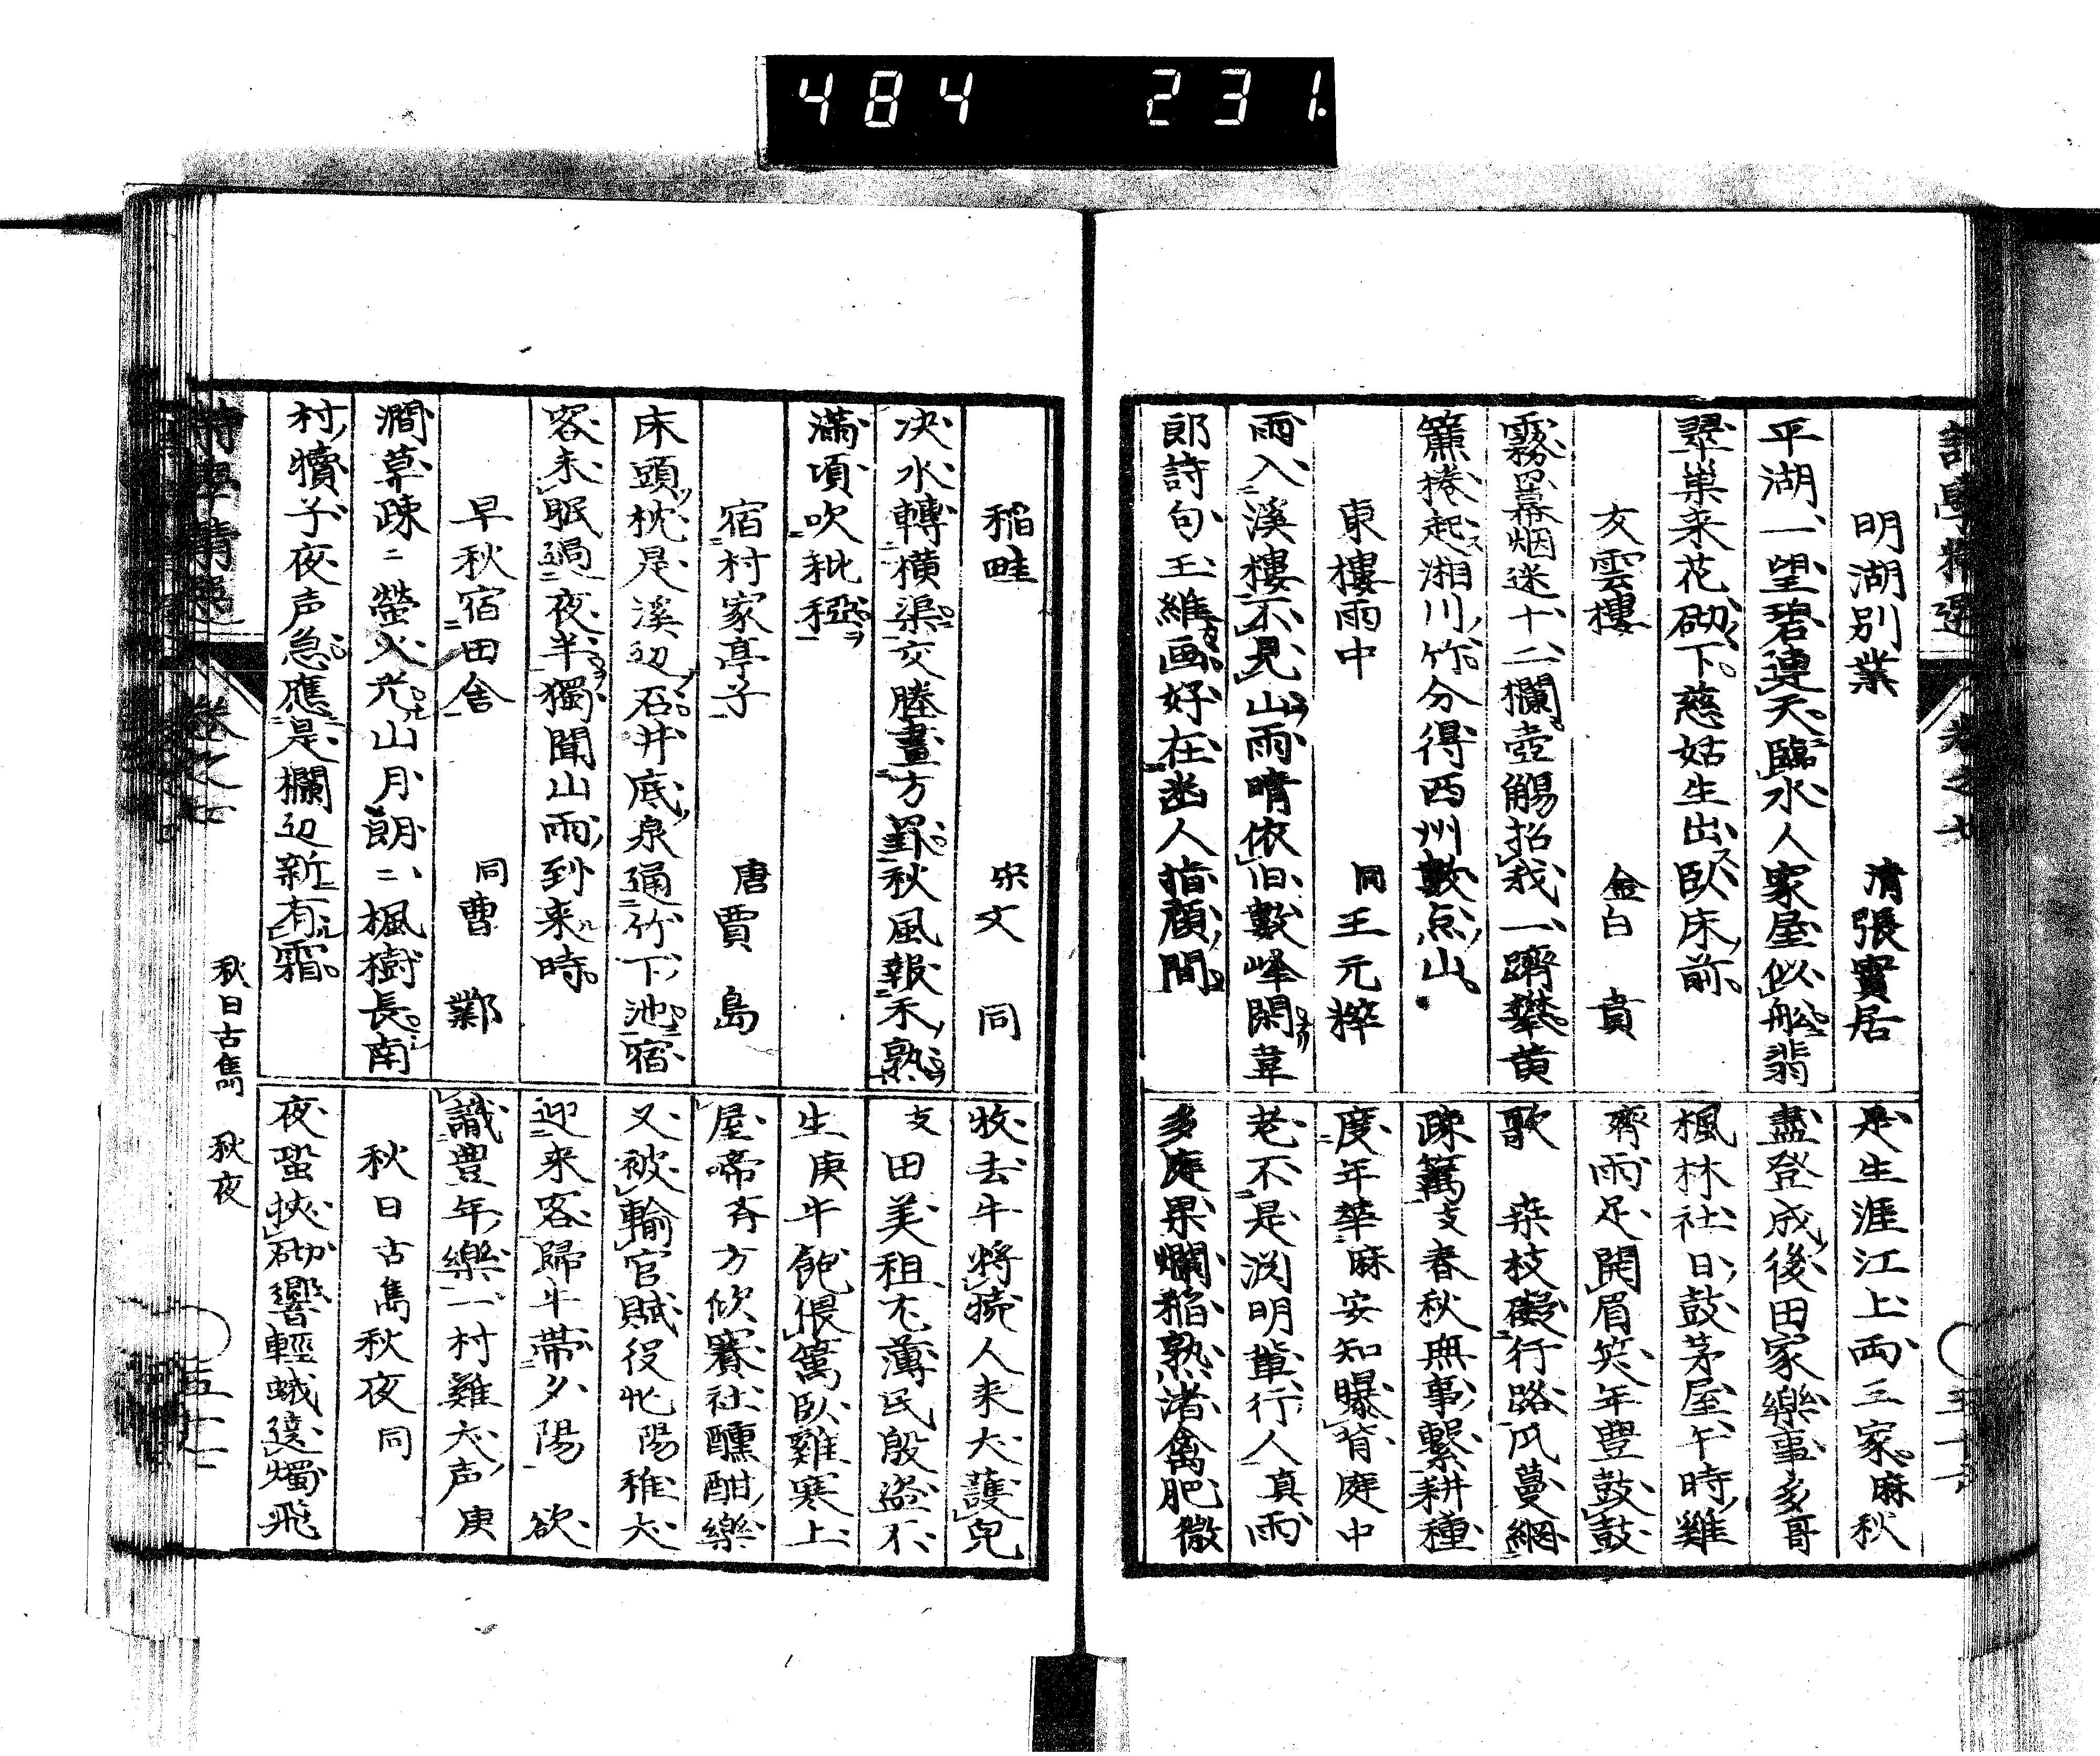 484 231
明湖別業 清張實居
平湖一望碧連天臨水人家屋似船翡
翠巣来花砌下慈姑生出臥床前
友雲樓 金白賁
霧幕烟迷十二欄壺觴招我一躋攀黄
簾捲起湘川竹分得西州數点山
東樓雨中 同王元粹
雨入溪樓不見山雨晴依旧數峰閑韋
郎詩句王維画好在幽人指顧間
是生涯江上両三家麻秋
盡登成後田家樂事多哥
楓林社日鼓茅屋午時雞
齊雨足開眉笑年豊鼓鼓
歌 桒枝礙行路瓜蔓網
疎籬支春秋無事繫耕種
度年華麻安知曝背庭中
老不是渕明軰行人真雨
多庭果爛稲熟渚禽肥微
稲畦 宋文同
决水轉横渠交塍畫方罫秋風報禾熟
満頃吹䄸稏
宿村家亭子 唐賈島
床頭枕是溪辺石井底泉通竹下池宿
客未眠過夜半獨聞山雨到来時
早秋宿田舎 同曹鄴
澗草疎二螢火光山月朗二楓樹長南
村犢子夜声急應是欄辺新有霜
牧去牛将犢人来犬護兒
支田美租不薄民殷盗不
生庚牛飽偎篱臥雞寒上
屋啼斉方欣賽社醺酣樂
又被輸官賦役忙陽稚犬
迎来客歸牛帯夕陽 欲
識豊年樂一村雞犬声庚
秋日古雋秋夜同
夜蛩挟砌響輕蛾遶燭飛
秋日古雋 秋夜